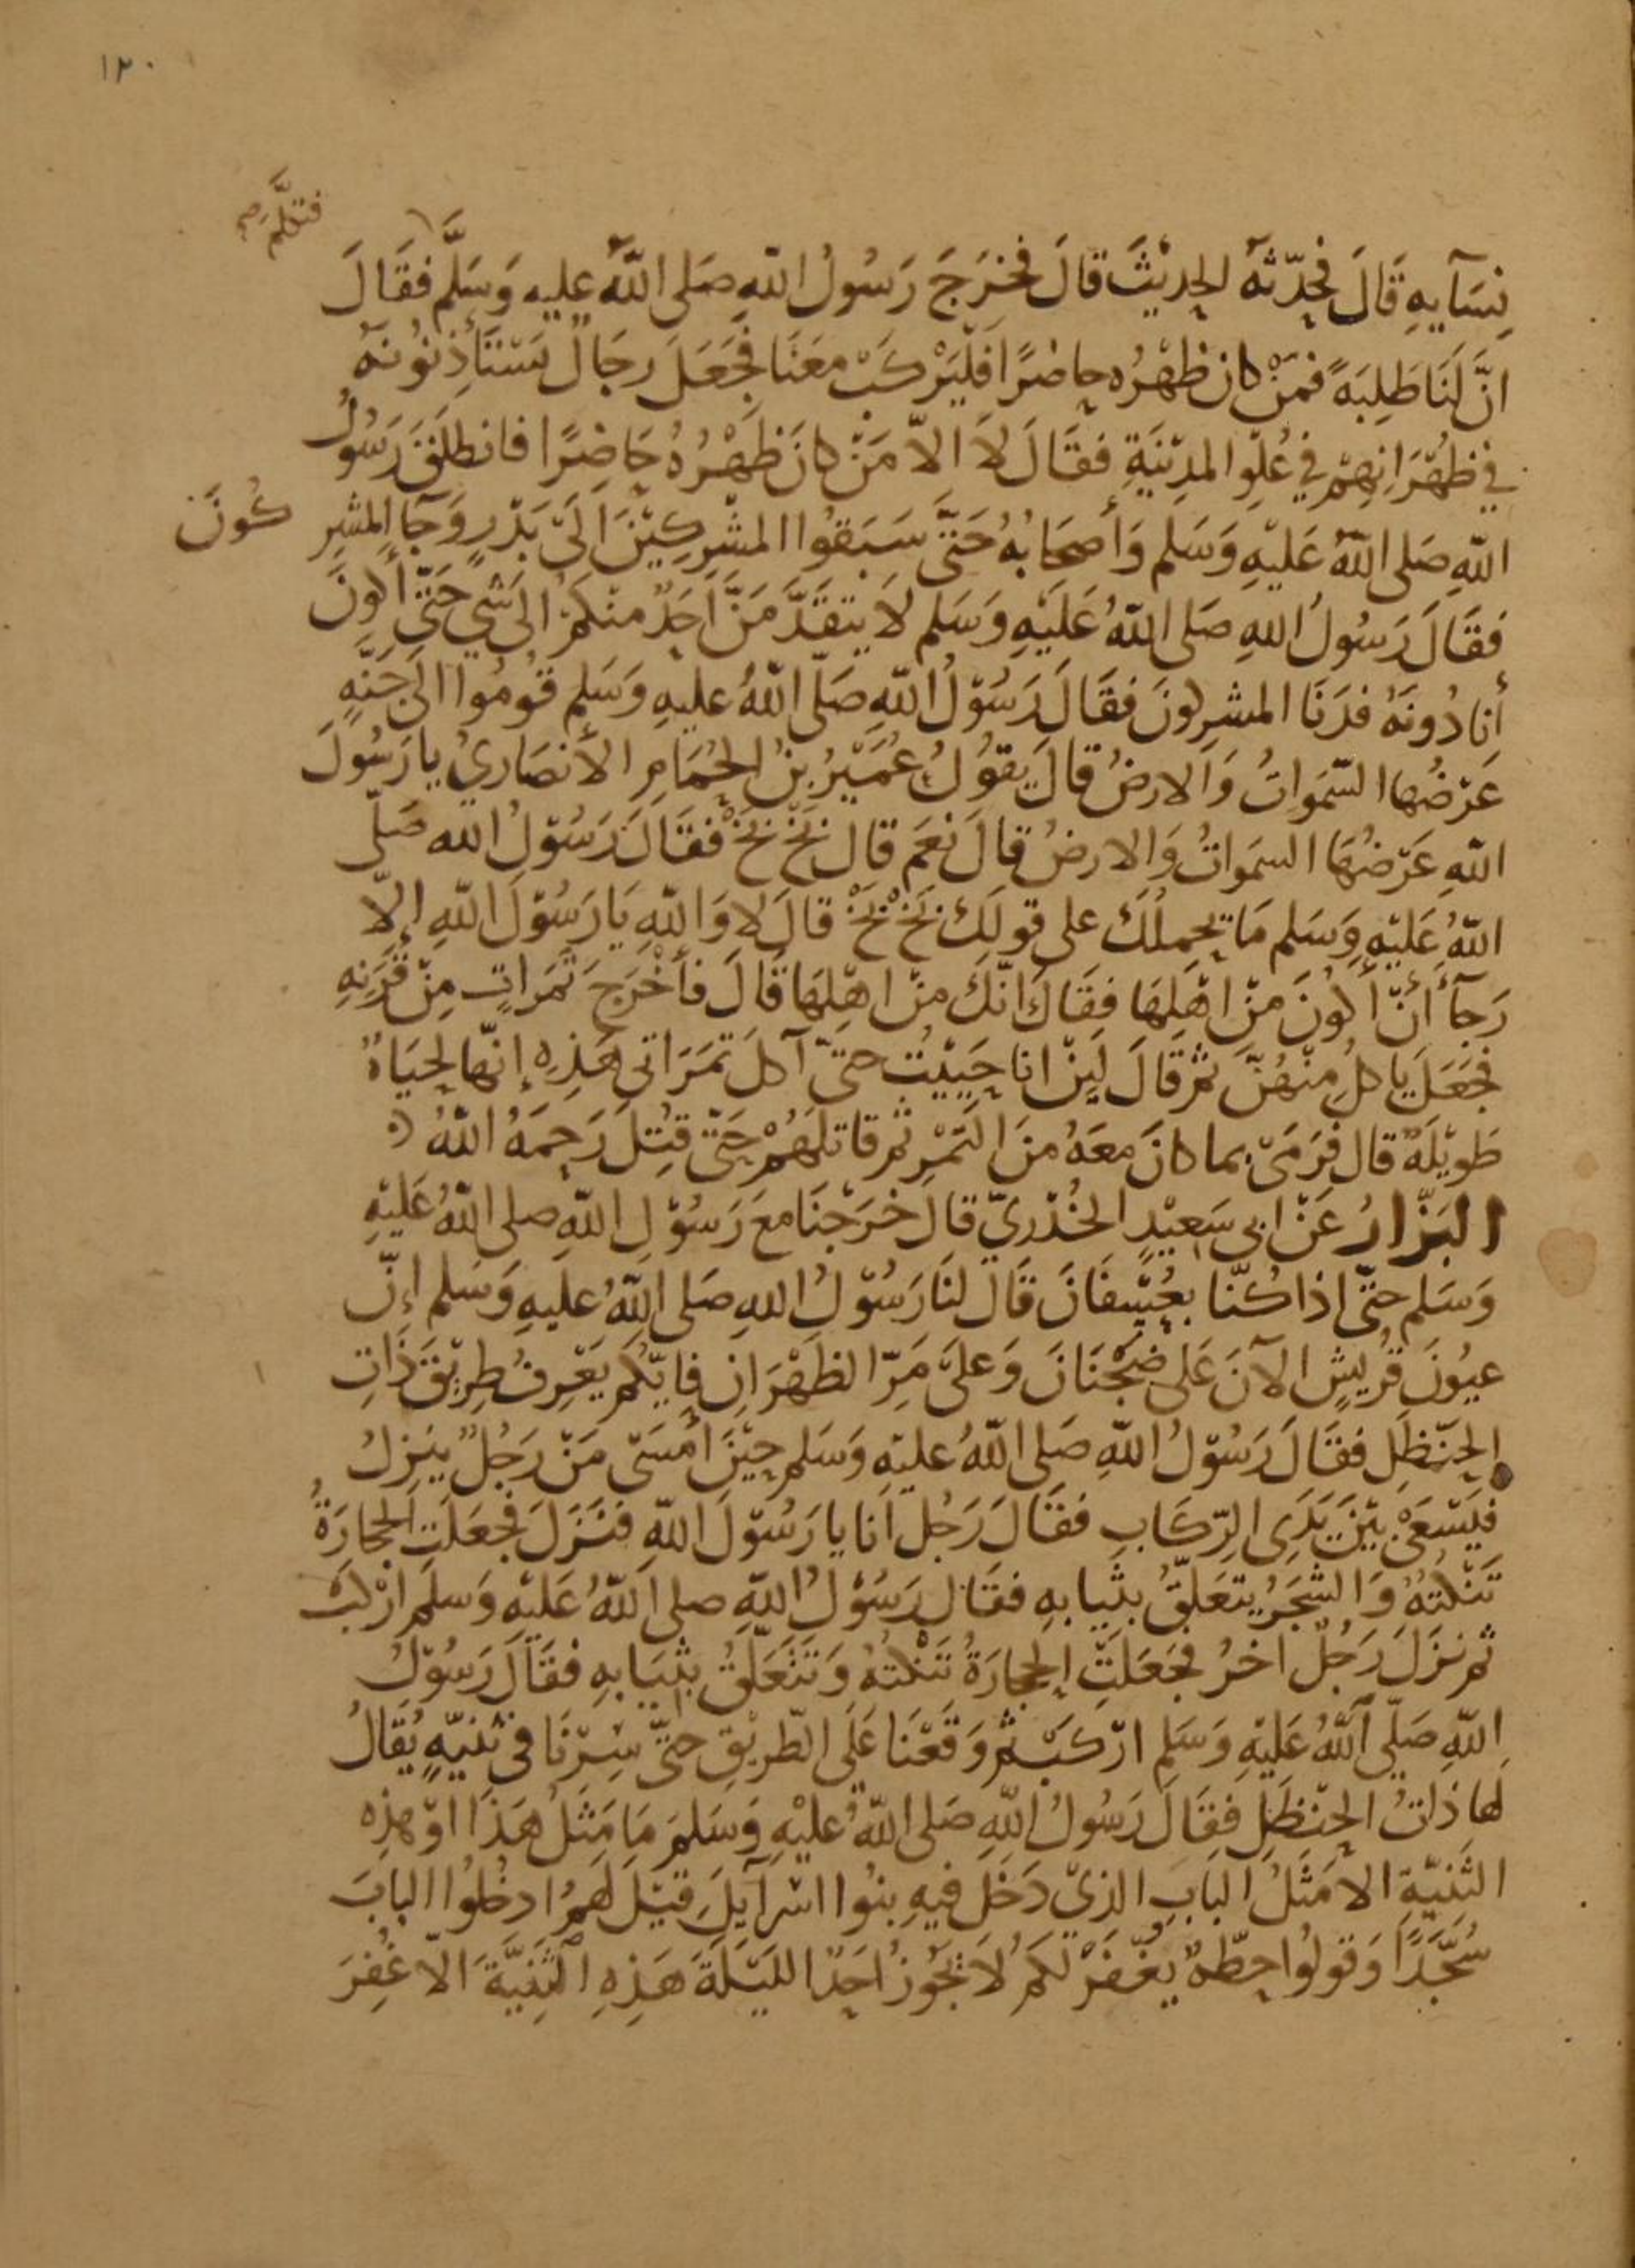 ١٢٠
فتكلم صح
نِسَآيِهِ قَالَ فحَدّثهُ الحدِيْثَ قالَ فخرَجَ رَسُولُ اللّهِ صَلى اللّهُ عليه وَسَلَّم فقَالَ
انَّ لَنَا طَلِبَةً فمَنْ كان ظَهْرُه حاضرًا فلْيَرْكَبْ معَنَا فجَعَلَ رجَالٌ يَسْتَأذِنُونهُ
في ظهْرَانِهِمْ في عُلْوِ المدِيْنَةِ فقَالَ لاَ الاّ مَنْ كانَ ظَهْرُهُ حَاضِرًا فانطلَقَ رَسُولُ
اللّهِ صَلى اللّهُ عَليْهِ وَسَلم وَأصحَابُهُ حَتَّى سَبَقُوا المشْرِكِيْنَ الَىْ بَدْرٍ وَجَا المشرِكُونَ
فقَالَ رَسُولُ اللهِ صَلى اللّهُ عَليْهِ وَسَلم لَا يتقدَّمَنَّ اَحَدٌ منْكمْ الى شَيْ حَتّى أكونَ
أنا دُونَهُ فدَنَا المشرِكونَ فقَالَ رَسُوْلُ اللّهِ صَلّى اللّهُ عليهِ وَسَلم قُومُوا الى جَنّةٍ
عَرْضُها السّمَواتُ وَالارضُ قالَ يقوُلُ عُمَيْرُ بنُ الحُمَامِ الأنصَاريُ يا رَسُولَ
اللّهِ عَرْضُهَا السمَواتُ وَالارضُ قالَ نعَم قال بَخْ بَخْ فقَالَ رَسُوْلُ الله صَلّى
اللّهُ عَليْهِ وَسَلم مَا يحمِلُكَ على قولِكَ بَخْ بَخْ قالَ لا وَاللّهِ يَا رَسُوْلَ اللّهِ إلّا
رَجآءَ أنْ أكونَ مِنْ اهْلِهَا فقَالَ انّكَ منْ اهْلِهَا قَالَ فأخْرَجَ تمَرَاتٍ مِنْ قَرَنِهِ
فجَعَلَ ياكلُ مِنْهُنَّ ثم قالَ لَيِنْ انا حَيِيْتُ حتىّ آكلَ تمَرَاتي هَذِهِ إنّها لحيَاةٌ
طَوِيْلَةٌ قال فرَمَىْ بما كانَ معَهُ منَ التمْرِ ثم قاتلَهُمْ حَتّى قُتِلَ رَحِمَهُ اللّهُ
البَزّارُ عَنْ ابى سَعِيْدٍ الخُدْرِيّ قالَ خرَجْنَا معَ رَسُوْلِ اللّهِ صلى اللّهُ عَليْهِ
وَسَلم حتّى اذا كنّا بعُسْفانَ قَالَ لنَا رَسُوْلُ اللهِ صَلى اللّهُ عليهِ وَسَلم إنّ
عيُونَ قُرَيشٍ الآنَ عَلى ضجْنَانَ وَعلىَ مَرّ الظهْرَانِ فايّكم يَعْرِفُ طرِيْقَ ذَاتِ
الحنْظَلِ فقَالَ رَسُوْلُ اللّهِ صَلى اللّهُ عليْهِ وَسَلم حِيْنَ أمْسَى مَنْ رَجُلٌ ينزِلُ
فيَسْعَىْ بيْنَ يَدَي الرّكَابِ فقَالَ رَجُل انا يا رَسُوْلَ اللّهِ فنَزَلَ فجعَلَتِ الحجارَةُ
تَنْكُتهُ وَالشجَرُ يتعَلّقُ بثيابهِ فقَال رَسُوْلُ اللّهِ صلى اللّهُ عَليْهِ وَسلم ارْكبْ
ثم نزَلَ رَجُلٌ اخرُ فجَعَلَتِ الحجارَةُ تَنْكتهُ وَتَتَعَلّقُ بثيَابهِ فقَالَ رَسُوْلُ
اللّهِ صَلّى اللّهُ عَليْهِ وَسَلم ارْكَبْ ثم وَقَعْنَا عَلَى الطّريْقِ حتىّ سِرْنَا فى ثنيّةٍ يُقَالُ
لها ذاتُ الحنْظَلِ فقَالَ رَسُولُ اللّهِ صَلى اللّهُ عليْهِ وَسَلمَ مَا مَثَلُ هَذَا اوْ هذِه
الثنِيّةِ الا مَثَلُ البَابِ الذيْ دَخَلَ فيهِ بنُوا اسْرَآيلَ قيْلَ لهمُ ادخُلوُا البابَ
سُجَّدًا وَقولُوا حِطّةٌ يُغْفَرْ لَكمْ لَا يَجُوزُ اَحَدٌ الليْلَةَ هَذِهِ الثنِيَّةَ الاّ غُفِرَ